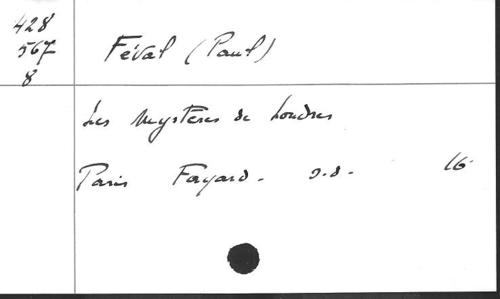 428
567
8
Féval (Paul)
Les Mystères de Londres
Paris Fayard. s.d. 16